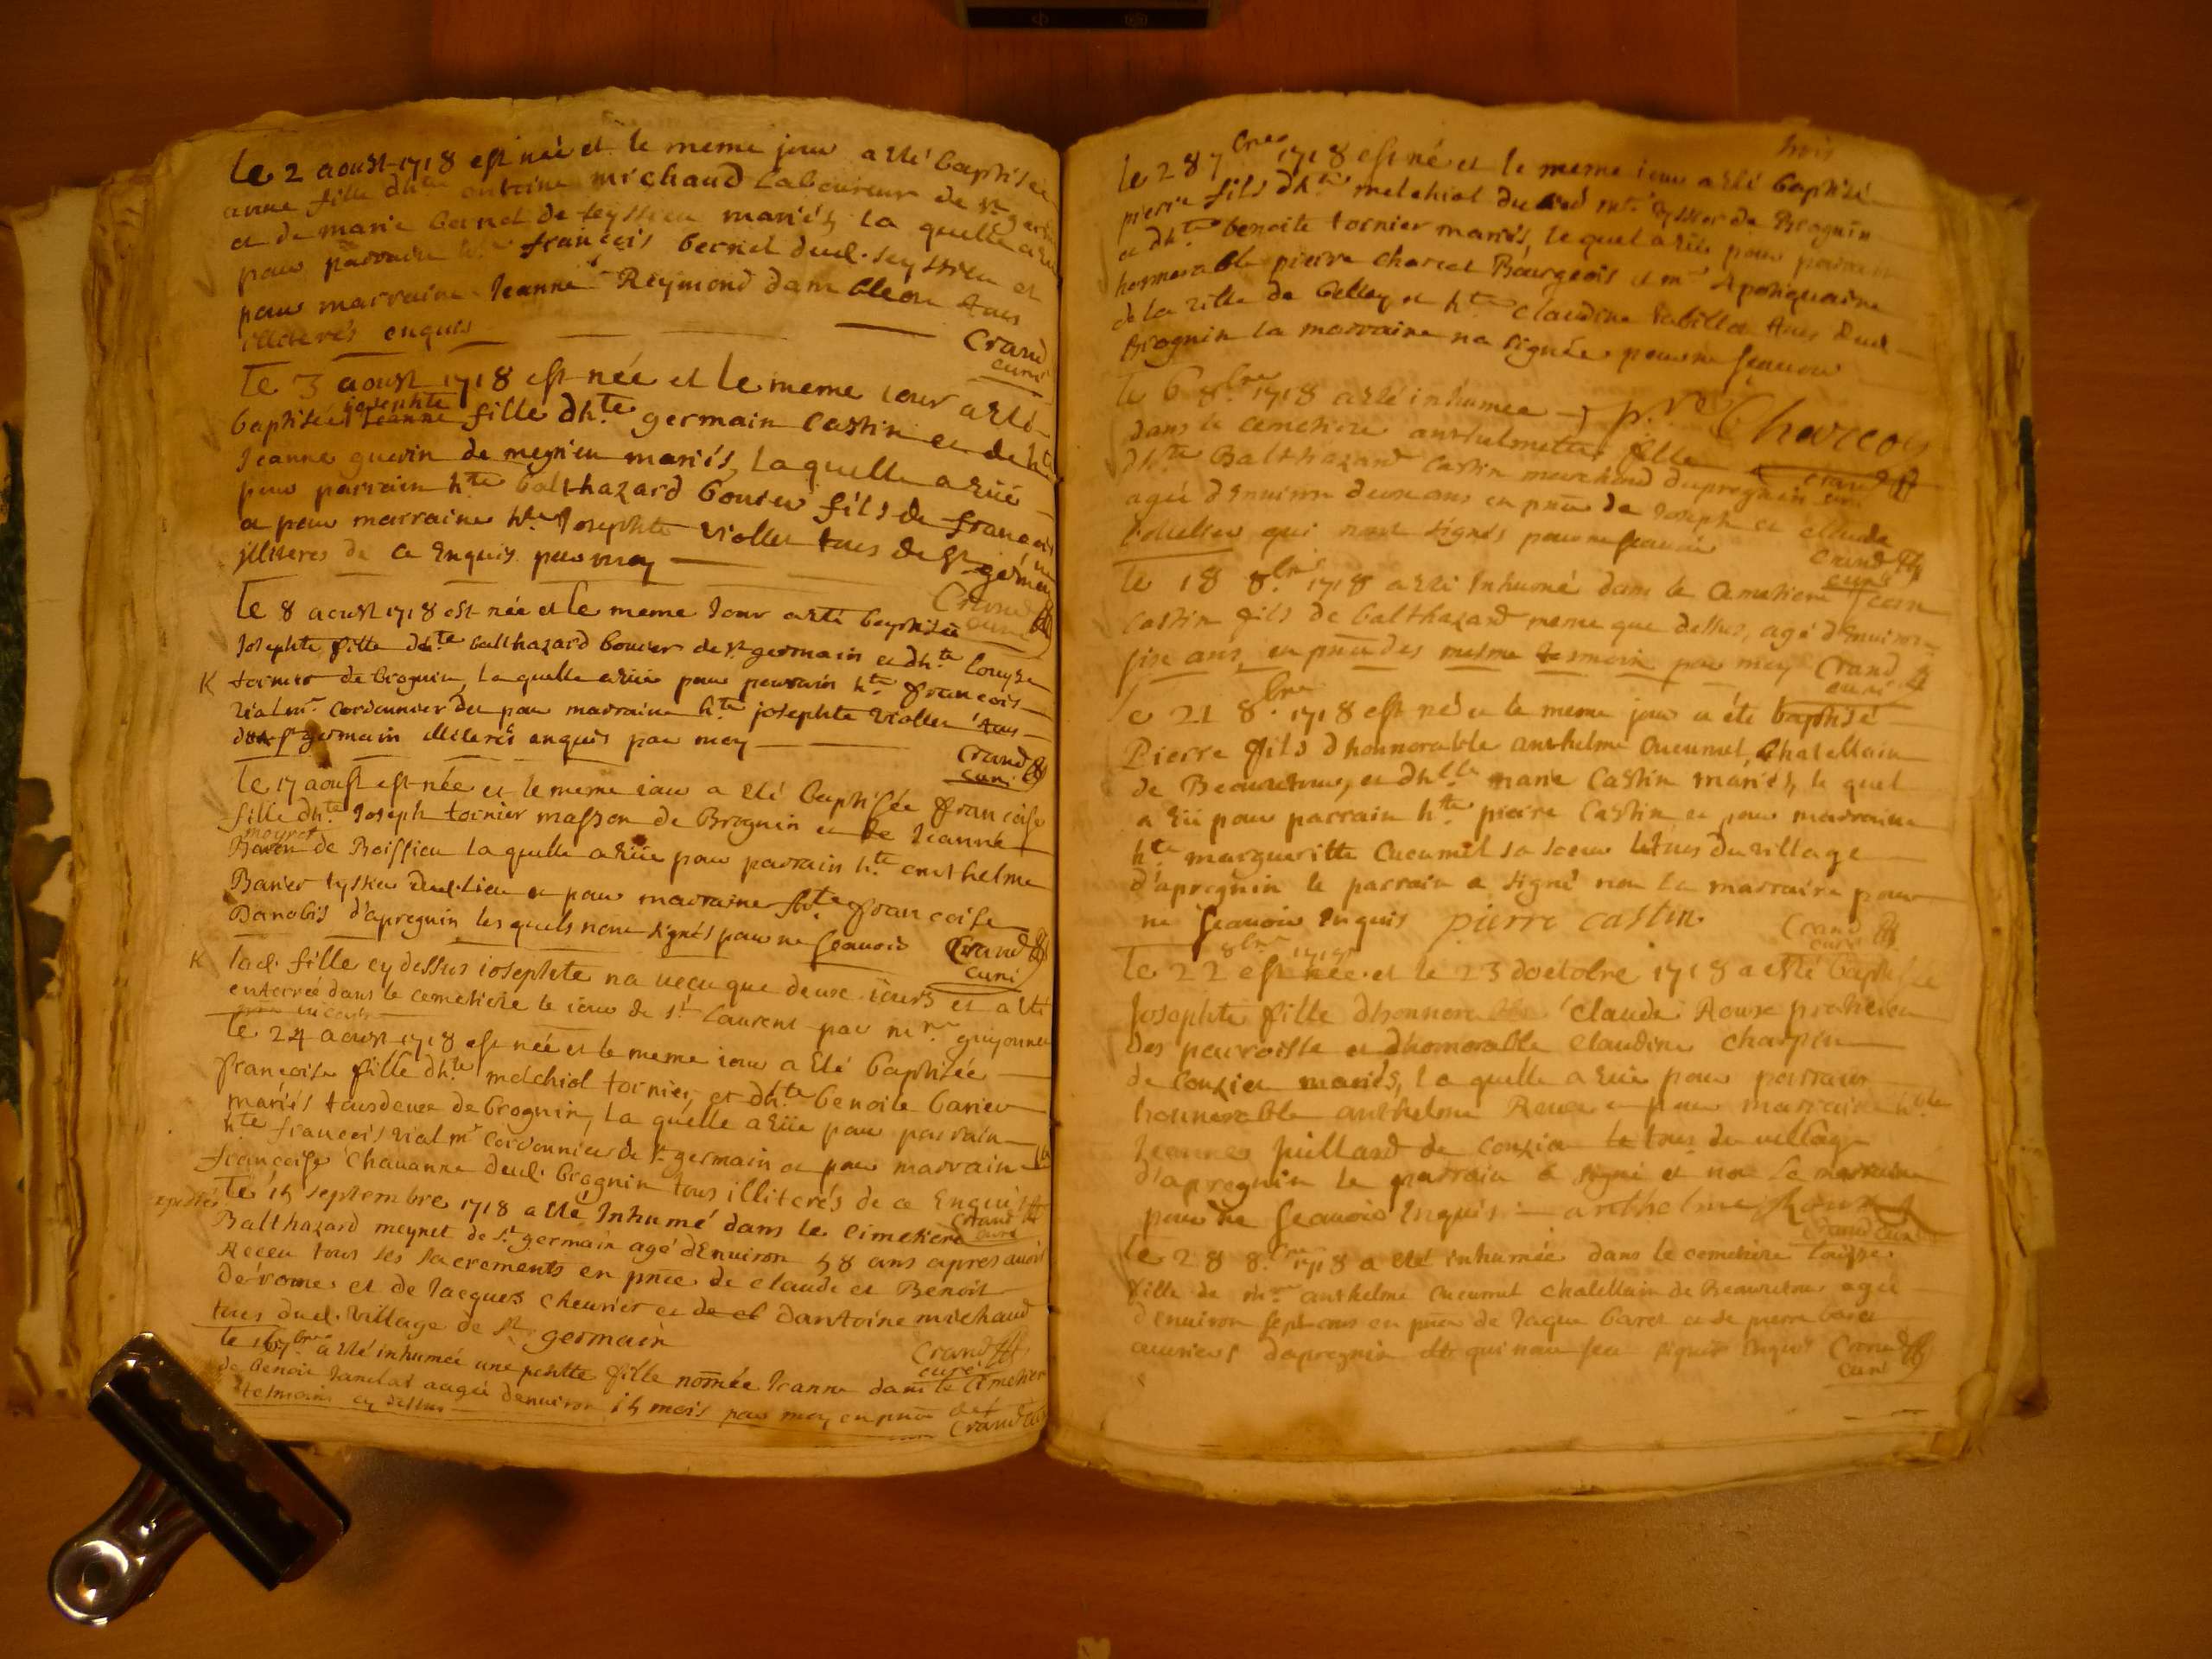 le 2 aoust 1718 est née et le meme jour a eté baptisée
anne fille dh.te antoine michaud laboureur de st germain
et de marie bernet de seyssieu mariés, la quelle a eu
pour parrain h.te françois bernet dud. seyssieu et
pour marraine Jeanne Reymond dam bleon tous
illiterés enquis
Crand
curé
Le 3 aoust 1718 est née et le meme iour a eté
baptisée josephte Jeanne fille dh.te germain Castin et de h.te
Jeanne guerin de meyrieu mariés, laquelle a eüe
pour parrain h.te balthazard bouier fils de françois
et pour marraine h.te Josephte viollet tous de st germain
jlliteres de ce Enquis par moy
Crand
curé
Le 8 aoust 1718 est née et le meme Jour a eté baptisée
Josephte fille dh.te balthazard bouier de st germain et dh.te louyse
K tornier de brognin, la quelle a eüe pour parrain h.te françois
vial m.r Cordonnier et pour marraine h.te josephte viollet tous
de st germain illiterés enquis par moy
Crand
curé
le 17 aoust est née et le meme iour a eté baptisée francoise
fille dh.te Joseph tornier masson de Brognin et de Jeanne
moyret
de Boissieu la quelle a eüe pour parrain h.te anthelme
Banier tyssier dud. lieu et pour marraine h.te francoise
Danobis d'apregnin les quels nont signés pour ne scauoir
Crand
curé
K lad. fille cy dessus iosephte na uecu que deux iours et a eté
enterrée dans le cemetiere le iour de st laurent par m.re guyonnet
le 24 aoust 1718 est née et le meme iour a eté baptisée
francoise fille dh.te melchiol tornier, et dh.te benoite banier
mariés tous deux de brognin, la quelle a eüe pour parrain
h.te françois vial m.r cordonnier de st germain et pour marraine
francoise Chauanne dud. brognin tous illiterés de ce Enquis
Crand
curé
Le 15 septembre 1718 a eté Inhumé dans le cimetiere
Balthazard meynet de st germain agé dEnuiron 58 ans apres auoir
Receu tous les sacrements en pnce de claude et Benoit
derome et de Jacques cheurier et de et dantoine michaud
tous dud. village de st germain
Crand
curé
le 16 7bre a eté inhumée une petitte fille nomée Jeanne dans le cimetiere
de benoit Janclat aagée denuiron 15 mois par moy en pnce des
tesmoins cy dessus
Crand curé
trois
le 28 7bre 1718 est né et le meme iour a eté baptisé
pierre fils dh.te melchiol du m.e tyssier de Brognin
et dh.te benoite tornier mariés, le quel a eüe pour parrain
honnorable pierre charcot Bourgeois et m.e Apotiquaire
de la ville de belley et h.te claudine tous dud.
Brognin la marraine na signée pour ne scauoir
p.re Charcot
Crand
curé
le 6 8bre 1718 a eté inhumee
dans le cemetiere anthelmette fille
dh.te Balthazard Castin marchand dapregnin
agée dEnuiron deux ans en pnce de Joseph et claude
qui nont signés pour ne scauoir
Crand
curé
Le 18 8bre 1718 a eté Inhumé dans le Cemetiere Jean
Castin fils de balthazard meme que dessus, agé dEnuiron
six ans, en pnce des mesme temoin par moy Crand
curé
Le 21 8bre 1718 est né et le meme jour a été baptisé
Pierre fils dhonnorable anthelme Cucumel, Chatellain
de Beauretour, et dh.lle marie Castin mariés, le quel
a eüe pour parrain h.te pierre Castin et pour marraine
h.te margueritte Cucumel sa soeur tous du village
d'apregnin le parrain a signé non la marraine pour
ne scauoir Enquis pierre castin
Crand
curé
Le 22 8bre 1718 est née et le 23 doctobre 1718 a eté baptisée
Josephte fille dhonnorable claude Roux praticien
des parroisse et dhonorable claudine charpin
de Conzieu mariés, la quelle a eüe pour parrain
honnorable anthelme Roux et pour marraine h.ble
Jeanne Juillard de conzieu tous du village
d'apregnin le parrain a signé et non la marraine
pour ne scauoir Enquis anthelme Roux
Crand curé
le 28 8bre 1718 a eté inhumée dans le cemetiere louise
fille de m.re anthelme cucumel chatellain de Beauretour agée
denuiron sept ans en pnce de Jaque baret et de pierre baret
ouuriers dapregnin qui nont sceu signer Enquis Crand
curé